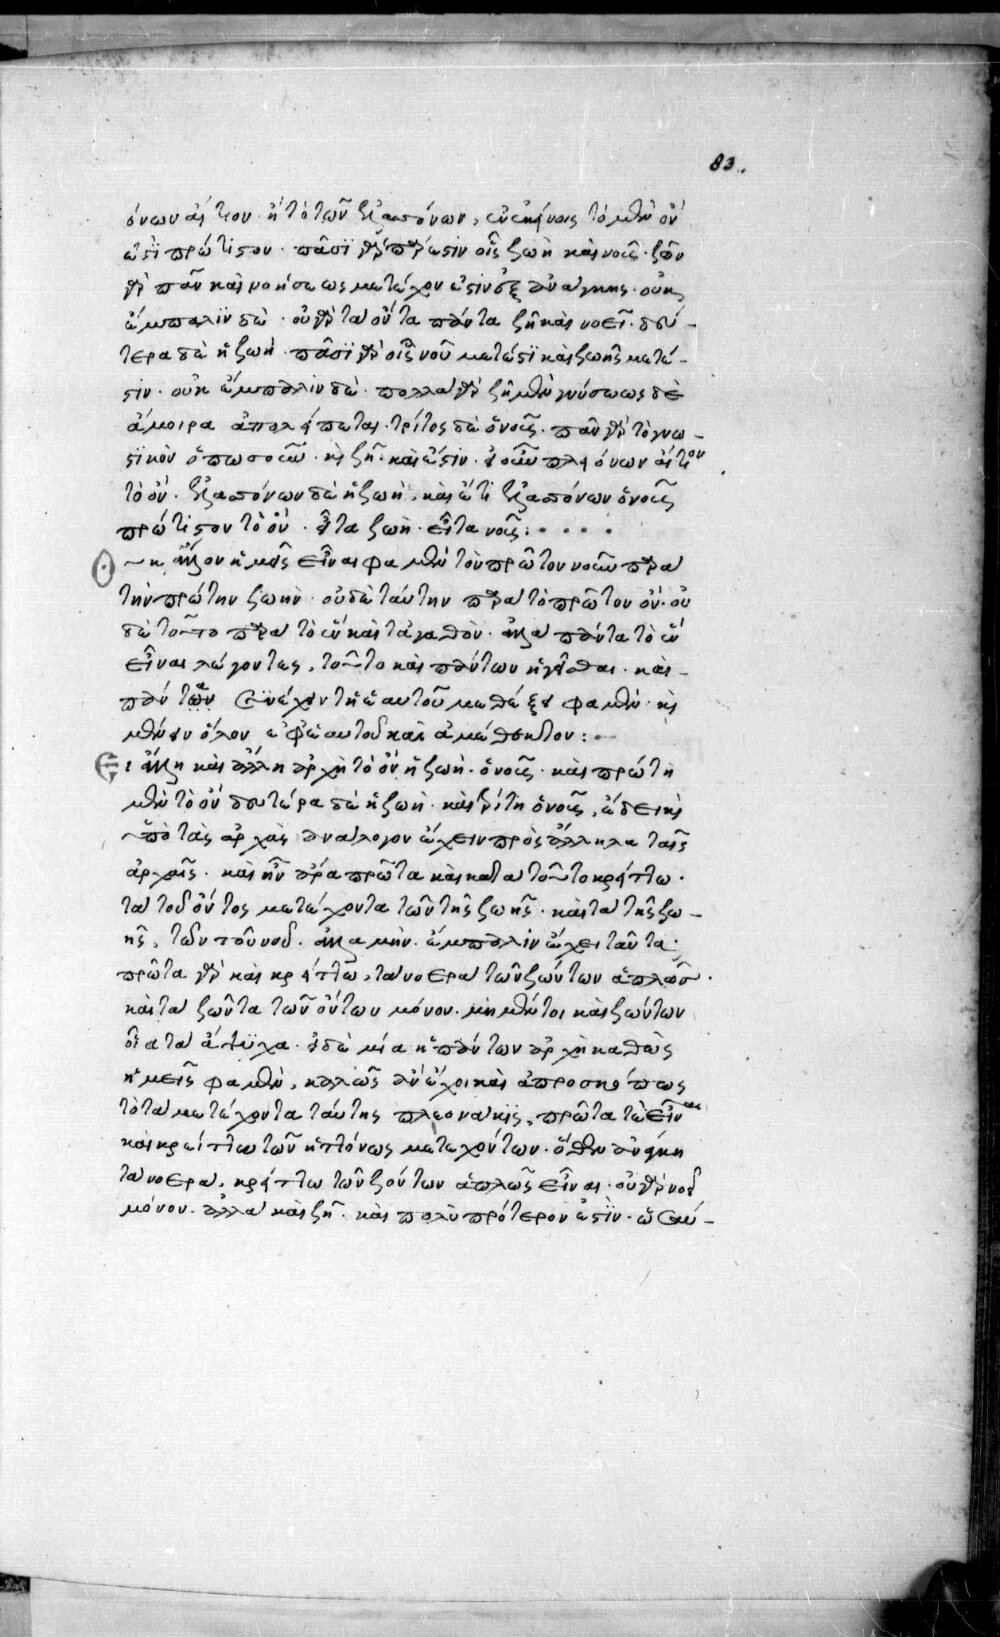 83.
όνων αἴτιον ἢ τὸ τῶν ἐλαττόνων, ἐν ἐκείνοις τὸ μὲν ὂν
ἐστὶ πρώτιστον. πᾶσι γὰρ πάρεστιν οἷς ζωὴ καὶ νοῦς. ζῶν
γὰρ πᾶν καὶ νοήσεως μετέχον ἐστὶν ἐξ ἀνάγκης. οὐκ
ἔμπαλιν δέ. οὐ γὰρ τὰ ὄντα πάντα ζῇ καὶ νοεῖ. δευ-
τέρα δὲ ἡ ζωή. πᾶσι γὰρ οἷς νοῦ μέτεστι καὶ ζωῆς μέτε-
στιν. οὐκ ἔμπαλιν δέ. πολλὰ γὰρ ζῇ μὲν γνώσεως δὲ
ἄμοιρα ἀπολείπεται. τρίτος δὲ ὁ νοῦς. πᾶν γὰρ τὸ γνω-
στικὸν ὁπωσοῦν καὶ ζῇ καὶ ἔστιν. εἰ οὖν πλειόνων αἴτιον
τὸ ὄν. ἐλαττόνων δὲ ἡ ζωὴ, καὶ ἔτι ἐλαττόνων ὁ νοῦς
πρώτιστον τὸ ὄν. εἶτα ζωὴ. εἶτα νοῦς:
ἀλλ' ἡμεῖς εἶναι φαμὲν τὸν πρῶτον νοῦν παρὰ
τὴν πρώτην ζωὴν. οὐδὲ ταύτην παρὰ τὸ πρῶτον ὄν. οὐ
δὲ τοῦτο παρὰ τὸ ἓν καὶ τἀγαθὸν. ἀλλὰ πάντα τὸ ἓν
εἶναι λέγοντες, τοῦτο καὶ πάντων ἡγεῖσθαι. καὶ
πάντων συνέχειν τῇ ἑαυτοῦ μεθέξει φαμὲν. καὶ
μένειν ὅλον ἐφ' ἑαυτοῦ καὶ ἀμέθεκτον:
Εἰ ἄλλη καὶ ἄλλη ἀρχὴ τὸ ὂν ἡ ζωὴ. ὁ νοῦς. καὶ πρώτη
μὲν τὸ ὂν δευτέρα δὲ ἡ ζωὴ. καὶ τρίτη ὁ νοῦς, ἔδει καὶ
τὰ ὑπὸ τὰς ἀρχὰς ἀνάλογον ἔχειν πρὸς ἄλληλα ταῖς
ἀρχαῖς. καὶ ἦν ἄρα πρῶτα καὶ κατὰ τοῦτο κρείττω.
τὰ τοῦ ὄντος μετέχοντα τῶν τῆς ζωῆς. καὶ τὰ τῆς ζω-
ῆς, τῶν τοῦ νοῦ. ἀλλὰ μὴν ἔμπαλιν ἔχει ταῦτα.
πρῶτα γὰρ καὶ κρείττω, τὰ νοερὰ τῶν ζώντων ἁπλῶς.
καὶ τὰ ζῶντα τῶν ὄντων μόνον. μὴ μέντοι καὶ ζώντων
οἷα τὰ ἄψυχα. εἰ δὲ μία ἡ πάντων ἀρχὴ καθὼς
ἡμεῖς φαμὲν, καλῶς ἂν ἔχοι καὶ ἀπροσκόπως
τὸ τὰ μετέχοντα ταύτης πλεονάκις, πρῶτά τε εἶναι
καὶ κρείττω τῶν ἡττόνως μετεχόντων. ὅθεν ἀνάγκη
τὰ νοερὰ, κρείττω τῶν ζώντων ἁπλῶς εἶναι. οὐ γὰρ νοεῖ
μόνον. ἀλλὰ καὶ ζῇ. καὶ πολὺ πρότερον ἐστὶν.